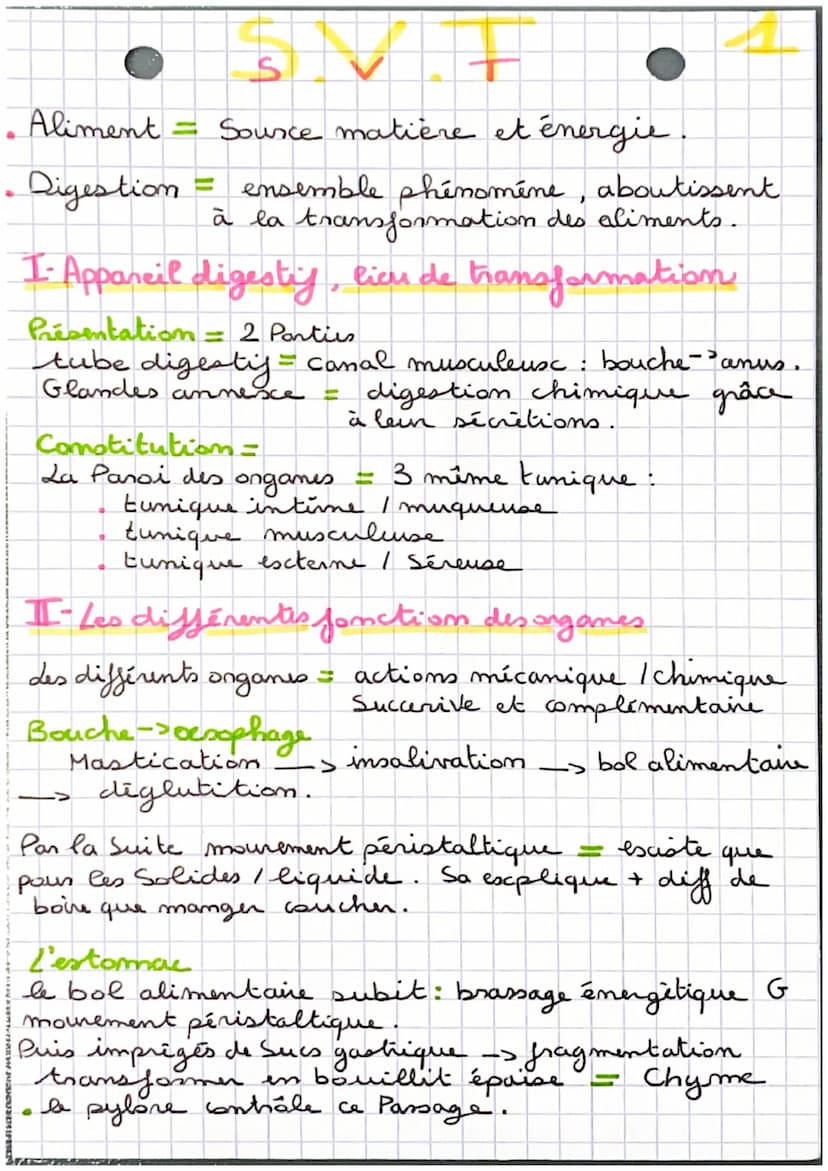 S.V.T 1
. Aliment = Source matière et énergie.
. Digestion = ensemble phénoméne, aboutissent
à la transformation des aliments.
I- Appareil digestif, lieu de transformation
Présentation = 2 Parties
tube digestif = canal musculeuse : bouche -> anus.
Glandes annexe = digestion chimique grâce
à leur sécrétions.
Constitution =
La Paroi des organes = 3 même tunique :
. tunique intime / muqueuse
. tunique musculeuse
. tunique externe / Séreuse
II- Les différentes fonction des organes
des différents organes = actions mécanique / chimique
Successive et complémentaire
Bouche -> oesophage
Mastication -> insalivation -> bol alimentaire
-> déglutition.
Par la Suite mouvement péristaltique = existe que
pour les Solides / liquide. Sa explique + diff de
boire que manger coucher.
L'estomac
le bol alimentaire subit : brassage énergétique G
mouvement péristaltique.
Puis imprégés de Sucs gastrique -> fragmentation
transformer en bouillit épaise = Chyme
. le pylore contrôle ce Passage.